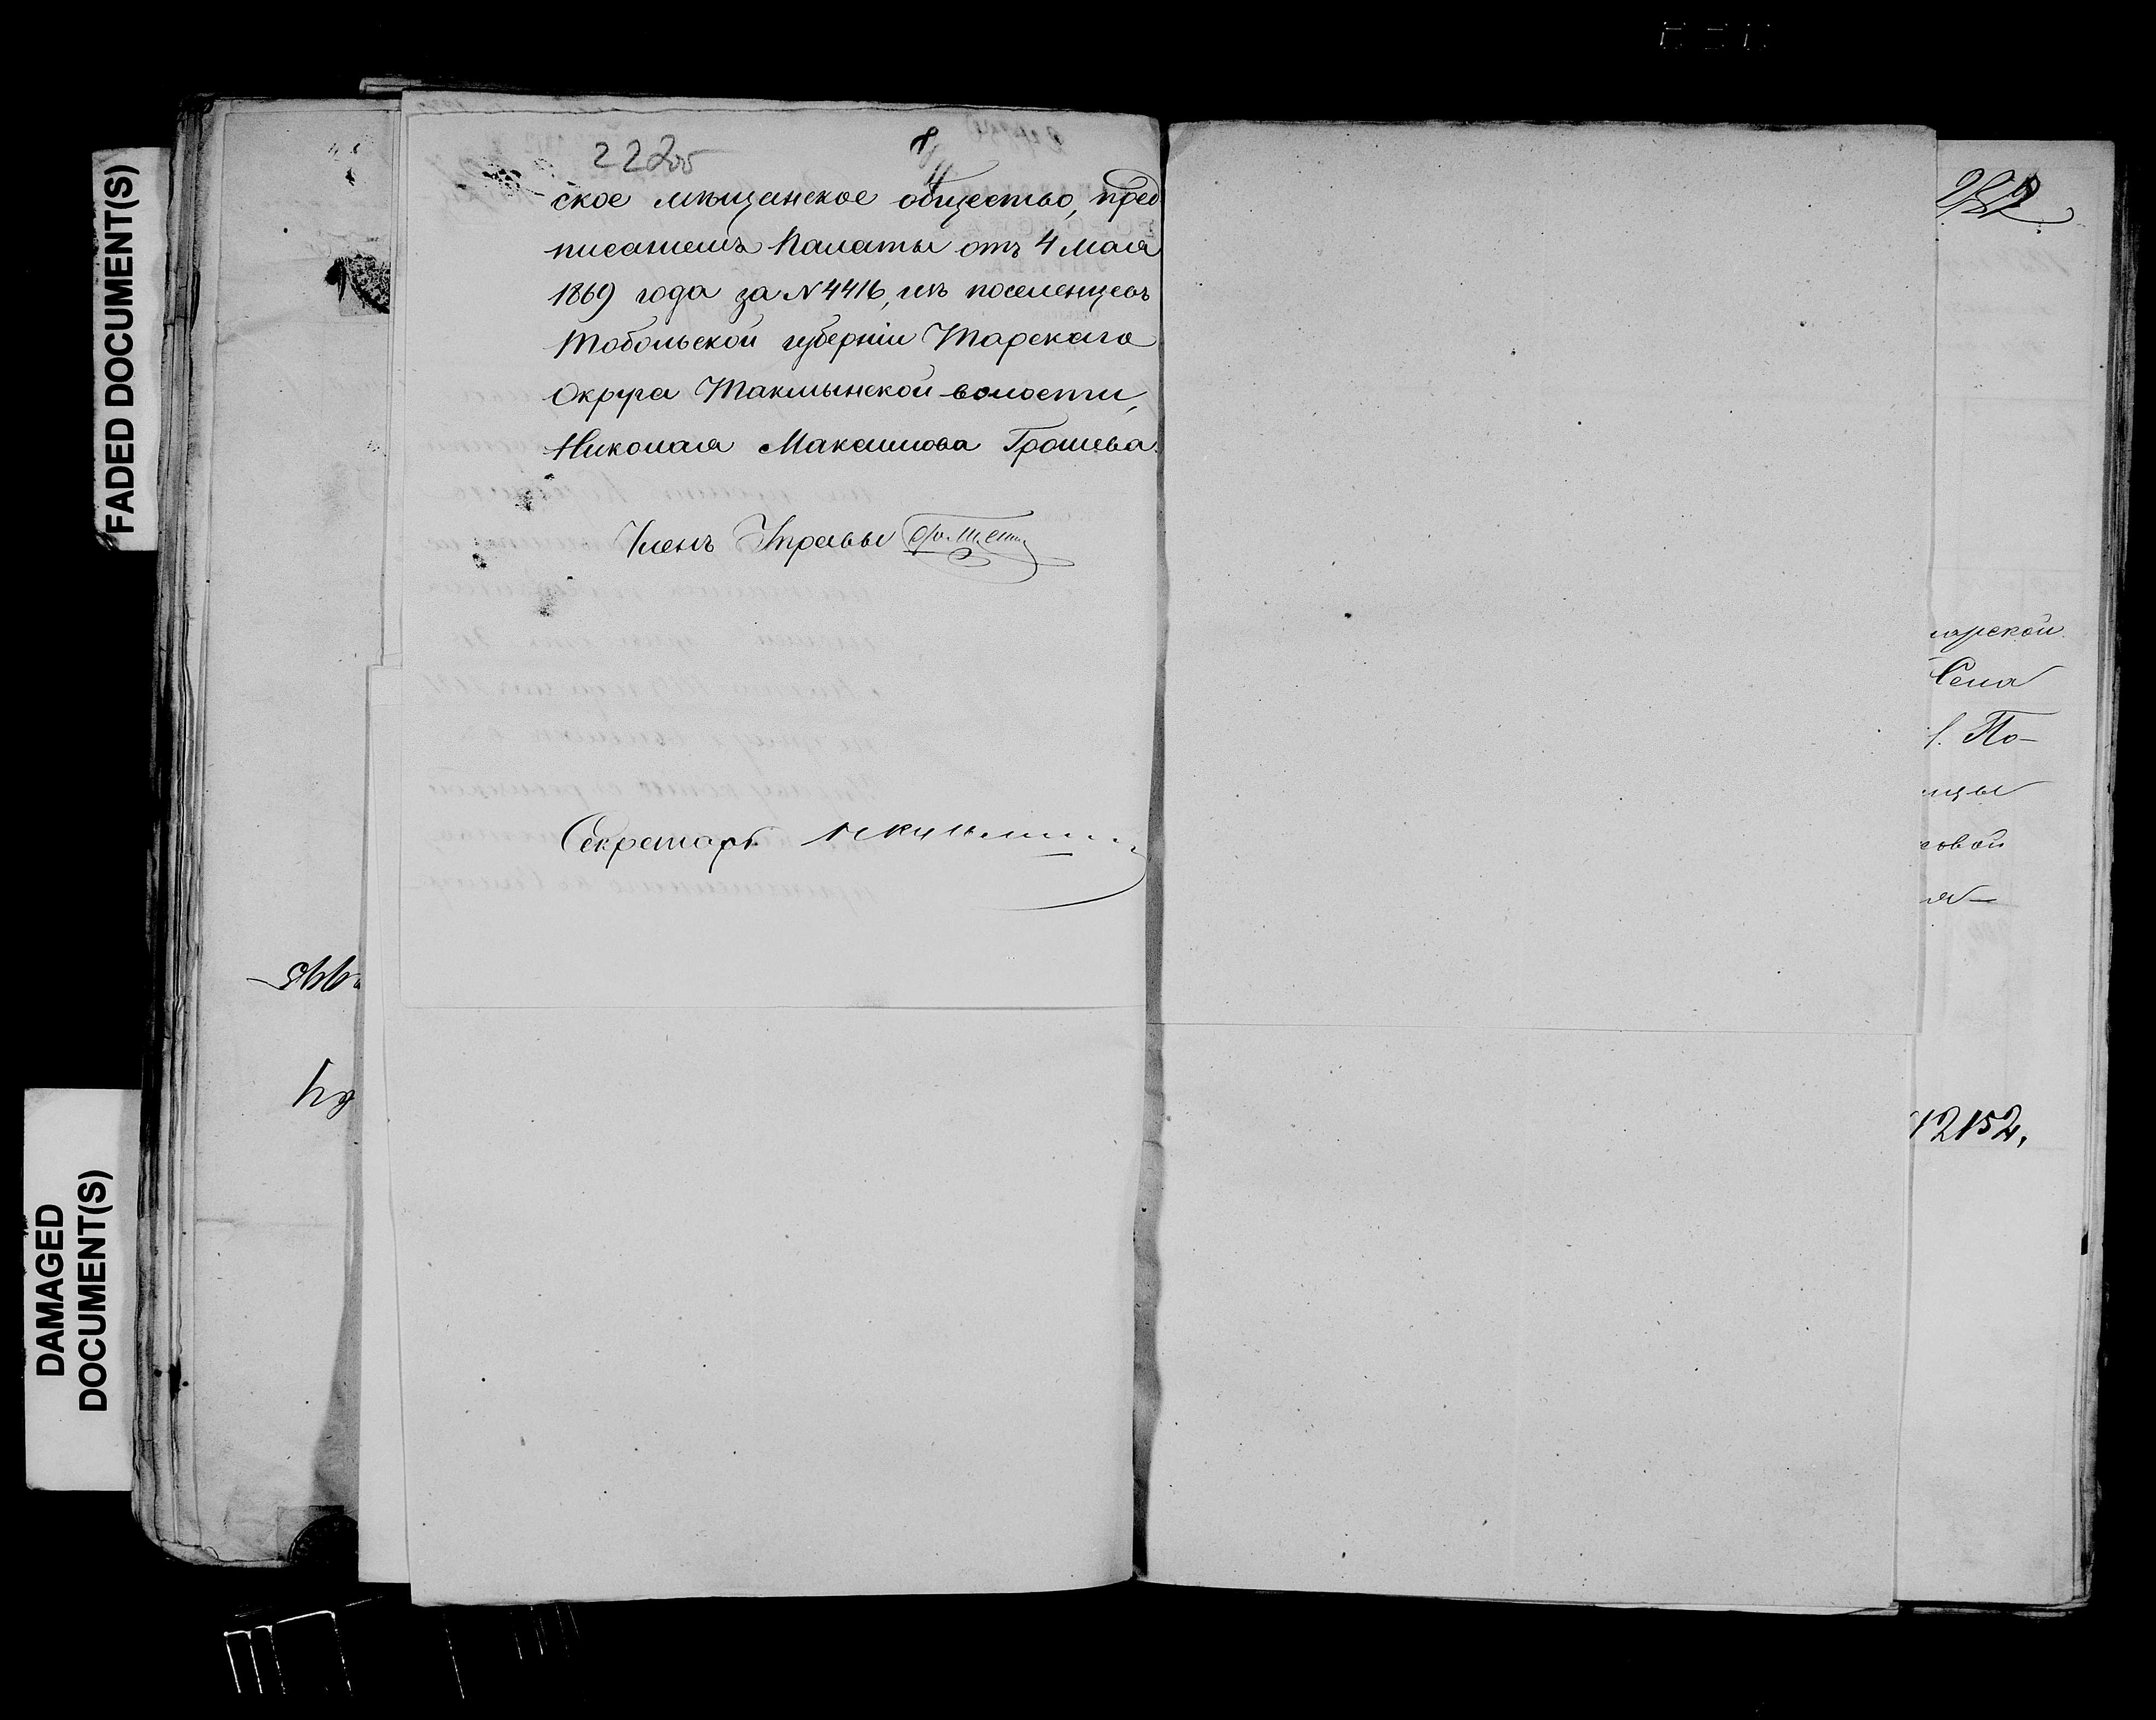 FADED DOCUMENT(S)
DAMAGED
DOCUMENT(S)
222об
ское мѣщанское общество, пред
писанiемъ Палаты отъ 4 мая
1869 года за N 4416, изъ поселенцевъ
Тобольской губернiи Тарскаго
Округа Такмынской волости,
Николая Максимова Грошева.
Членъ Управы
Секретарь
Села
По-
ицы
12152,